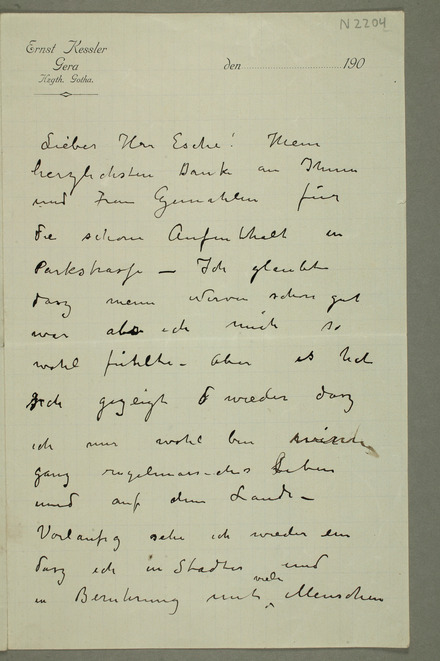 N 2204
Ernst Kessler
Gera
Hzgth. Gotha.
den 190
Lieber Herr Esche! Mein
herzlichsten Dank an Ihnen
und Frau Gemahlen für
die schone Aufenthalt in
Parkstrasse — Ich glaubte
dasz meine Nerven schon gut
war als ich mich so
wohl fühlte — Aber es hat
sich gezeigt wieder dasz
ich nur wohl bin
ganz regelmassiches Leben
und auf dem Lande —
Vorlaufig sehe ich wieder ein
dasz ich in Stadten und
in Beruhrung mit viele Menschen